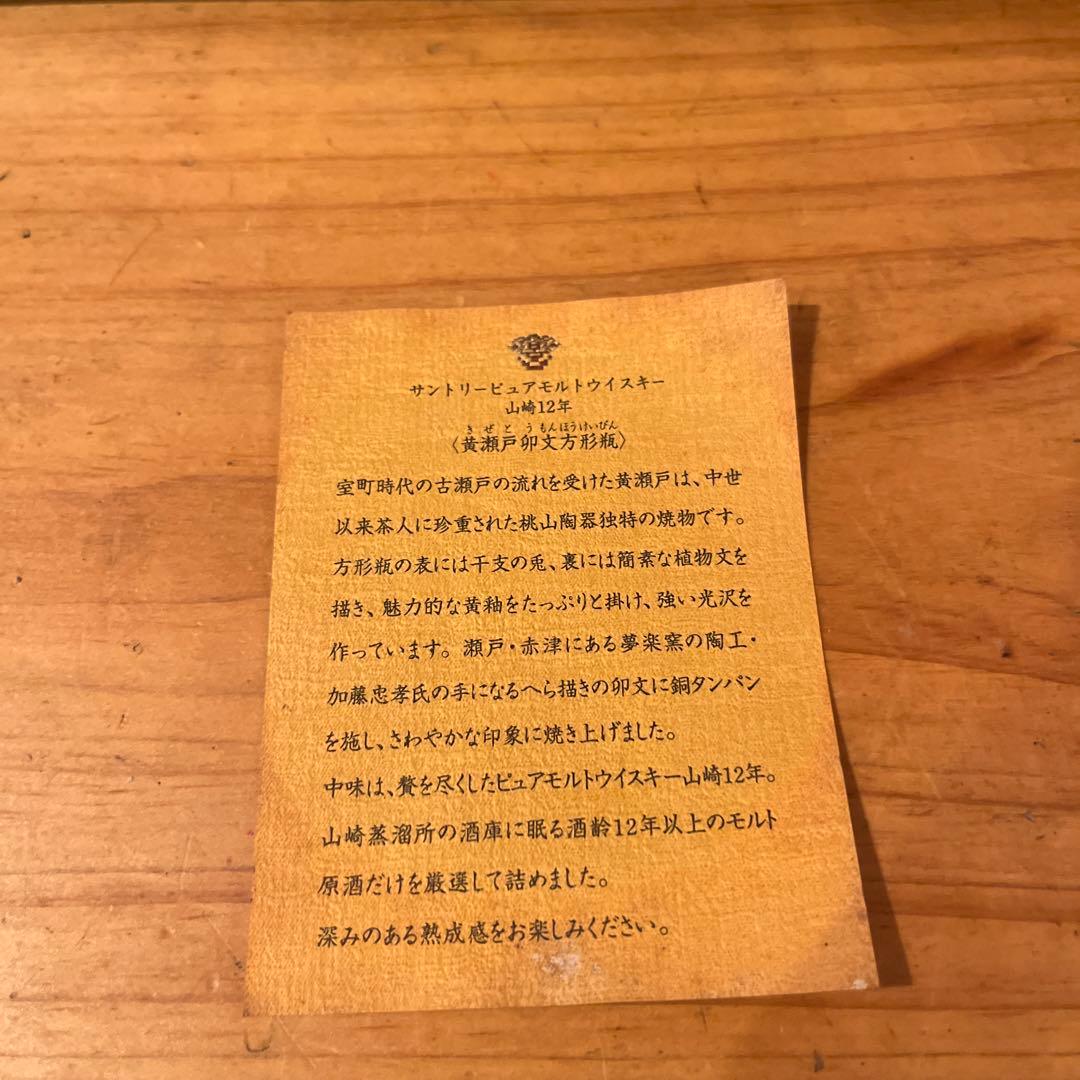 サントリーピュアモルトウイスキー
山崎12年
きぜとうもんほうけいびん
〈黄瀬戸卯文方形瓶〉
室町時代の古瀬戸の流れを受けた黄瀬戸は、中世
以来茶人に珍重された桃山陶器独特の焼物です。
方形瓶の表には干支の兎、裏には簡素な植物文を
描き、魅力的な黄釉をたっぷりと掛け、強い光沢を
作っています。瀬戸・赤津にある夢楽窯の陶工・
加藤忠孝氏の手になるへら描きの卯文に銅タンバン
を施し、さわやかな印象に焼き上げました。
中味は、贅を尽くしたピュアモルトウイスキー山崎12年。
山崎蒸溜所の酒庫に眠る酒齢12年以上のモルト
原酒だけを厳選して詰めました。
深みのある熟成感をお楽しみください。